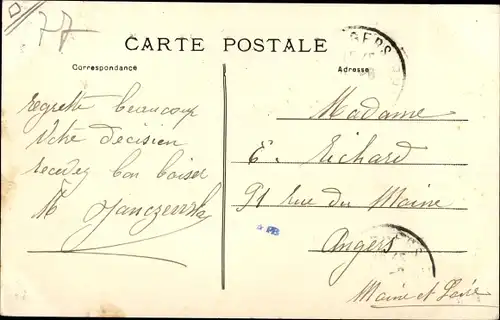 77
CARTE POSTALE
Correspondance
Adresse
regrette beaucoup
Votre décision
recevez bon baiser
Madame
E. Richard
91 Rue du Maine
Angers
Maine et Loire